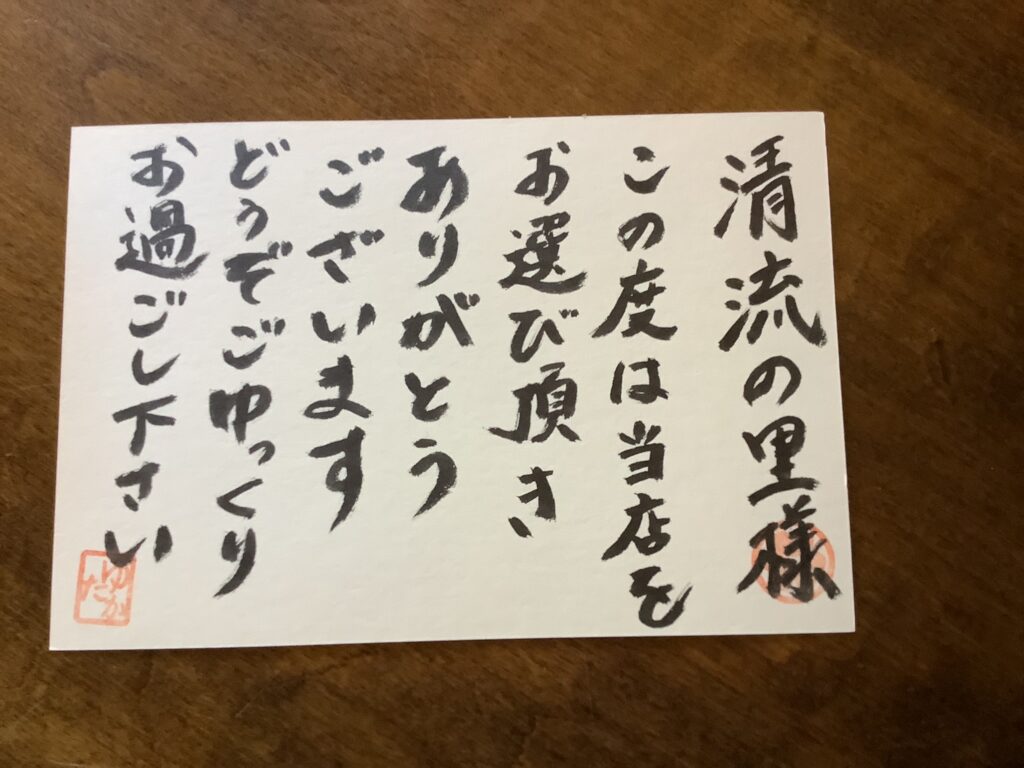 清流の里様
この度は当店を
お選び頂き
ありがとう
ございます
どうぞごゆっくり
お過ごし下さい
ゆたか